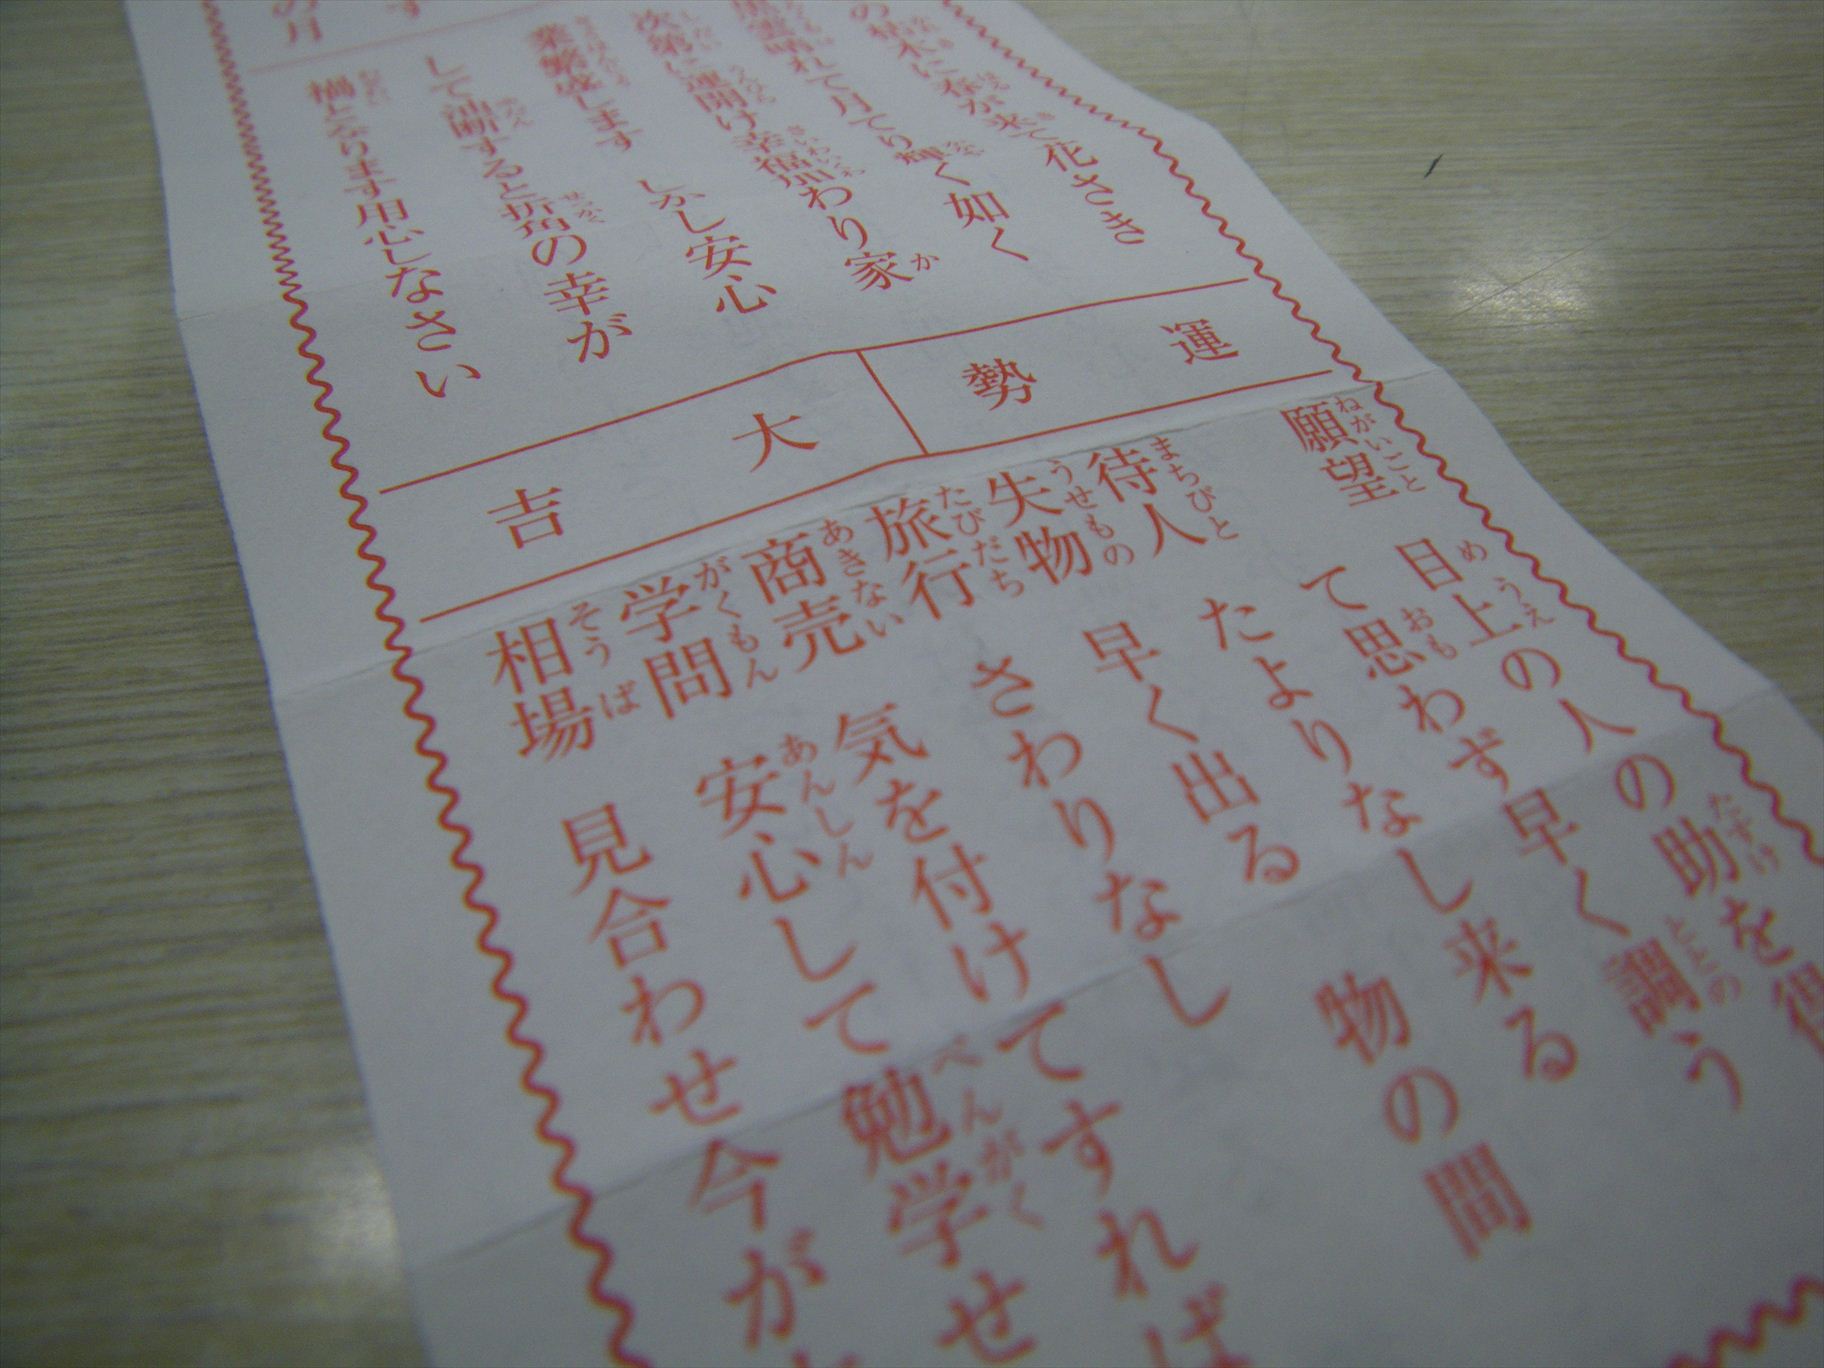 の月
す
の枯木に春が来て花さき
黒雲晴れて月てり輝く如く
次第に運開け幸福加わり家
業繁盛します しかし安心
して油断すると折角の幸が
禍となります用心しなさい
運勢 大吉
願望 目上の人の助を得
て思わず早く調う
待人 たよりなし来る
失物 早く出る 物の間
旅行 さわりなし
商売 気を付けてすれば
学問 安心して勉学せ
相場 見合わせ今が